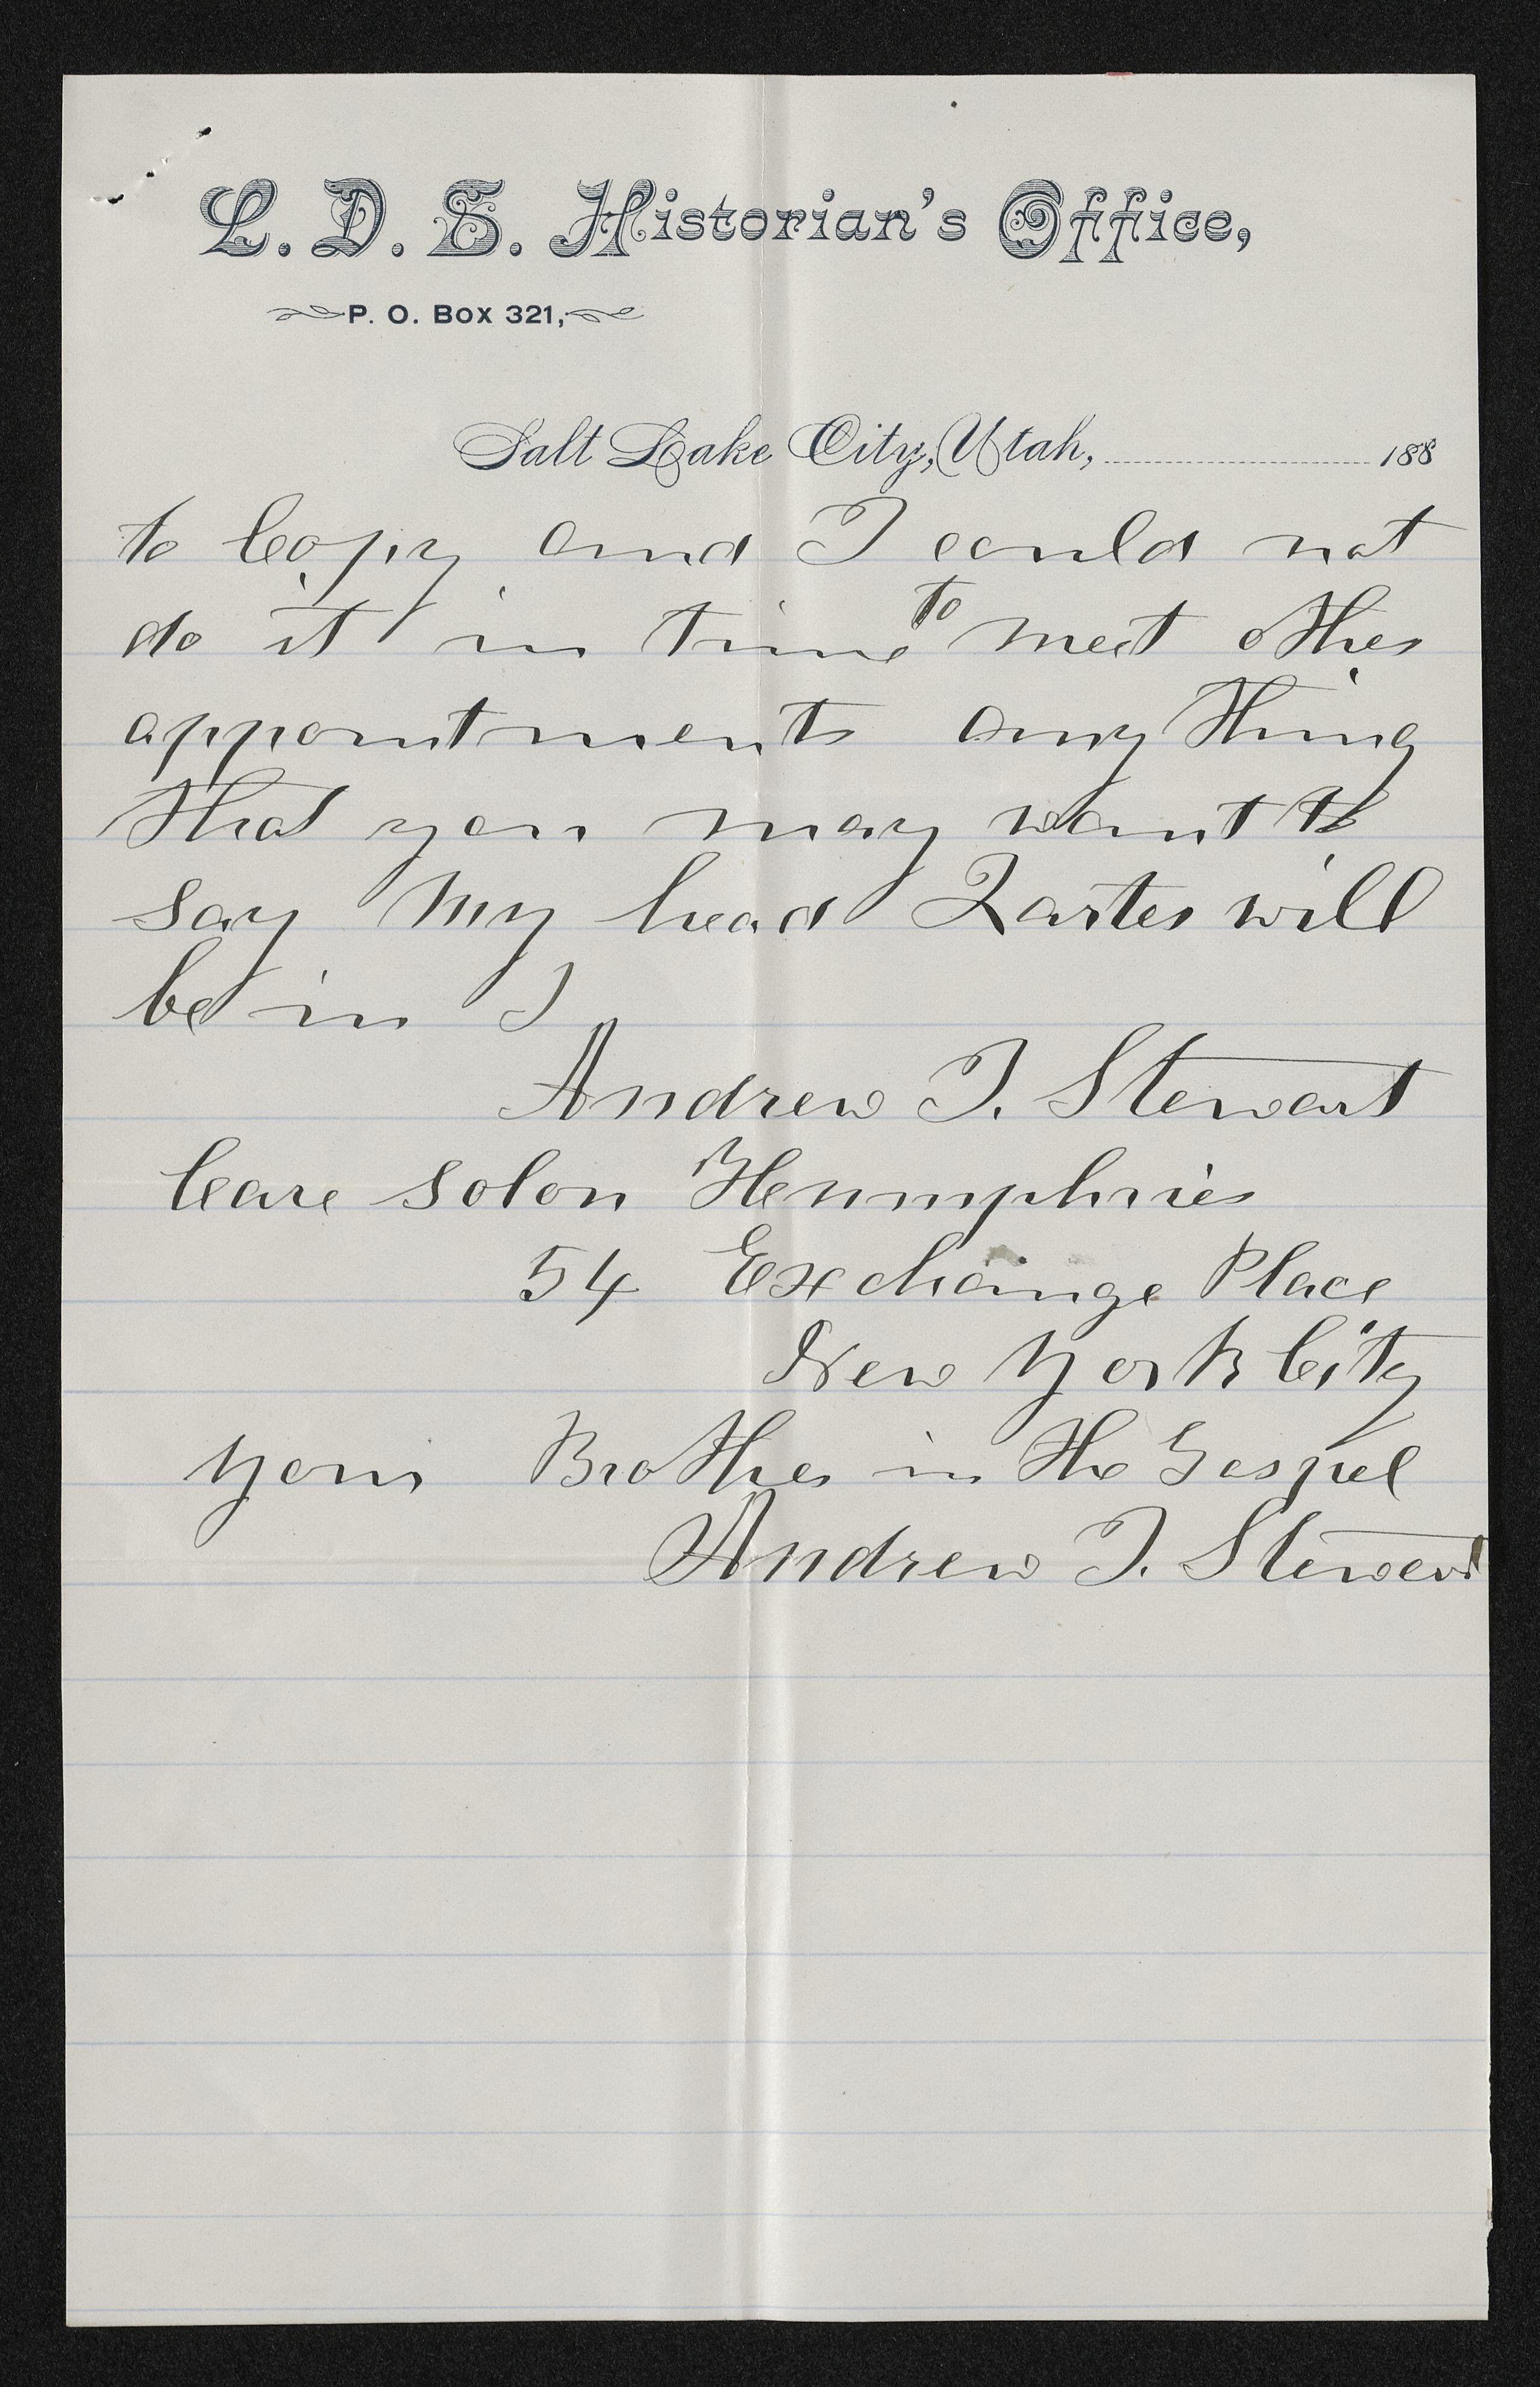 L. D. S. Historian's Office,
P. O. Box 321,
Salt Lake City, Utah, 188
to Copy and I could not
do it in time to meet other
appointments any thing
that you may want to
say My head Qarters will
be in
Andrew J. Stewart
Care Solon Hemmphries
54 Exchange Place
New York City
Your Brother in the Gospel
Andrew J. Stewart